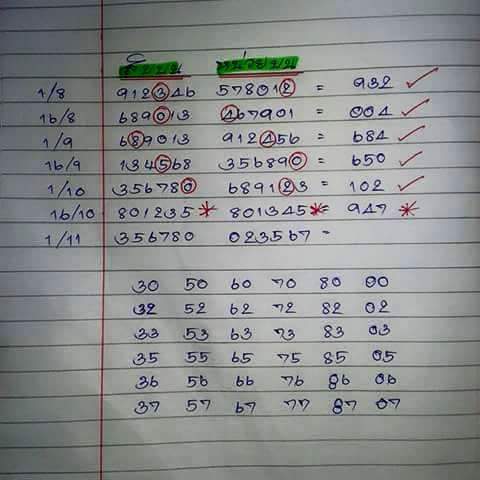 สิบบน หน่วยบน
1/8 912346 578012 = 932 ✓
16/8 689013 467901 = 004 ✓
1/9 689013 912456 = 684 ✓
16/9 134568 356890 = 650 ✓
1/10 356780 689123 = 102 ✓
16/10 801235 * 801345 * = 947 *
1/11 356780 023567 =
30 50 60 70 80 00
32 52 62 72 82 02
33 53 63 73 83 03
35 55 65 75 85 05
36 56 66 76 86 06
37 57 67 77 87 07